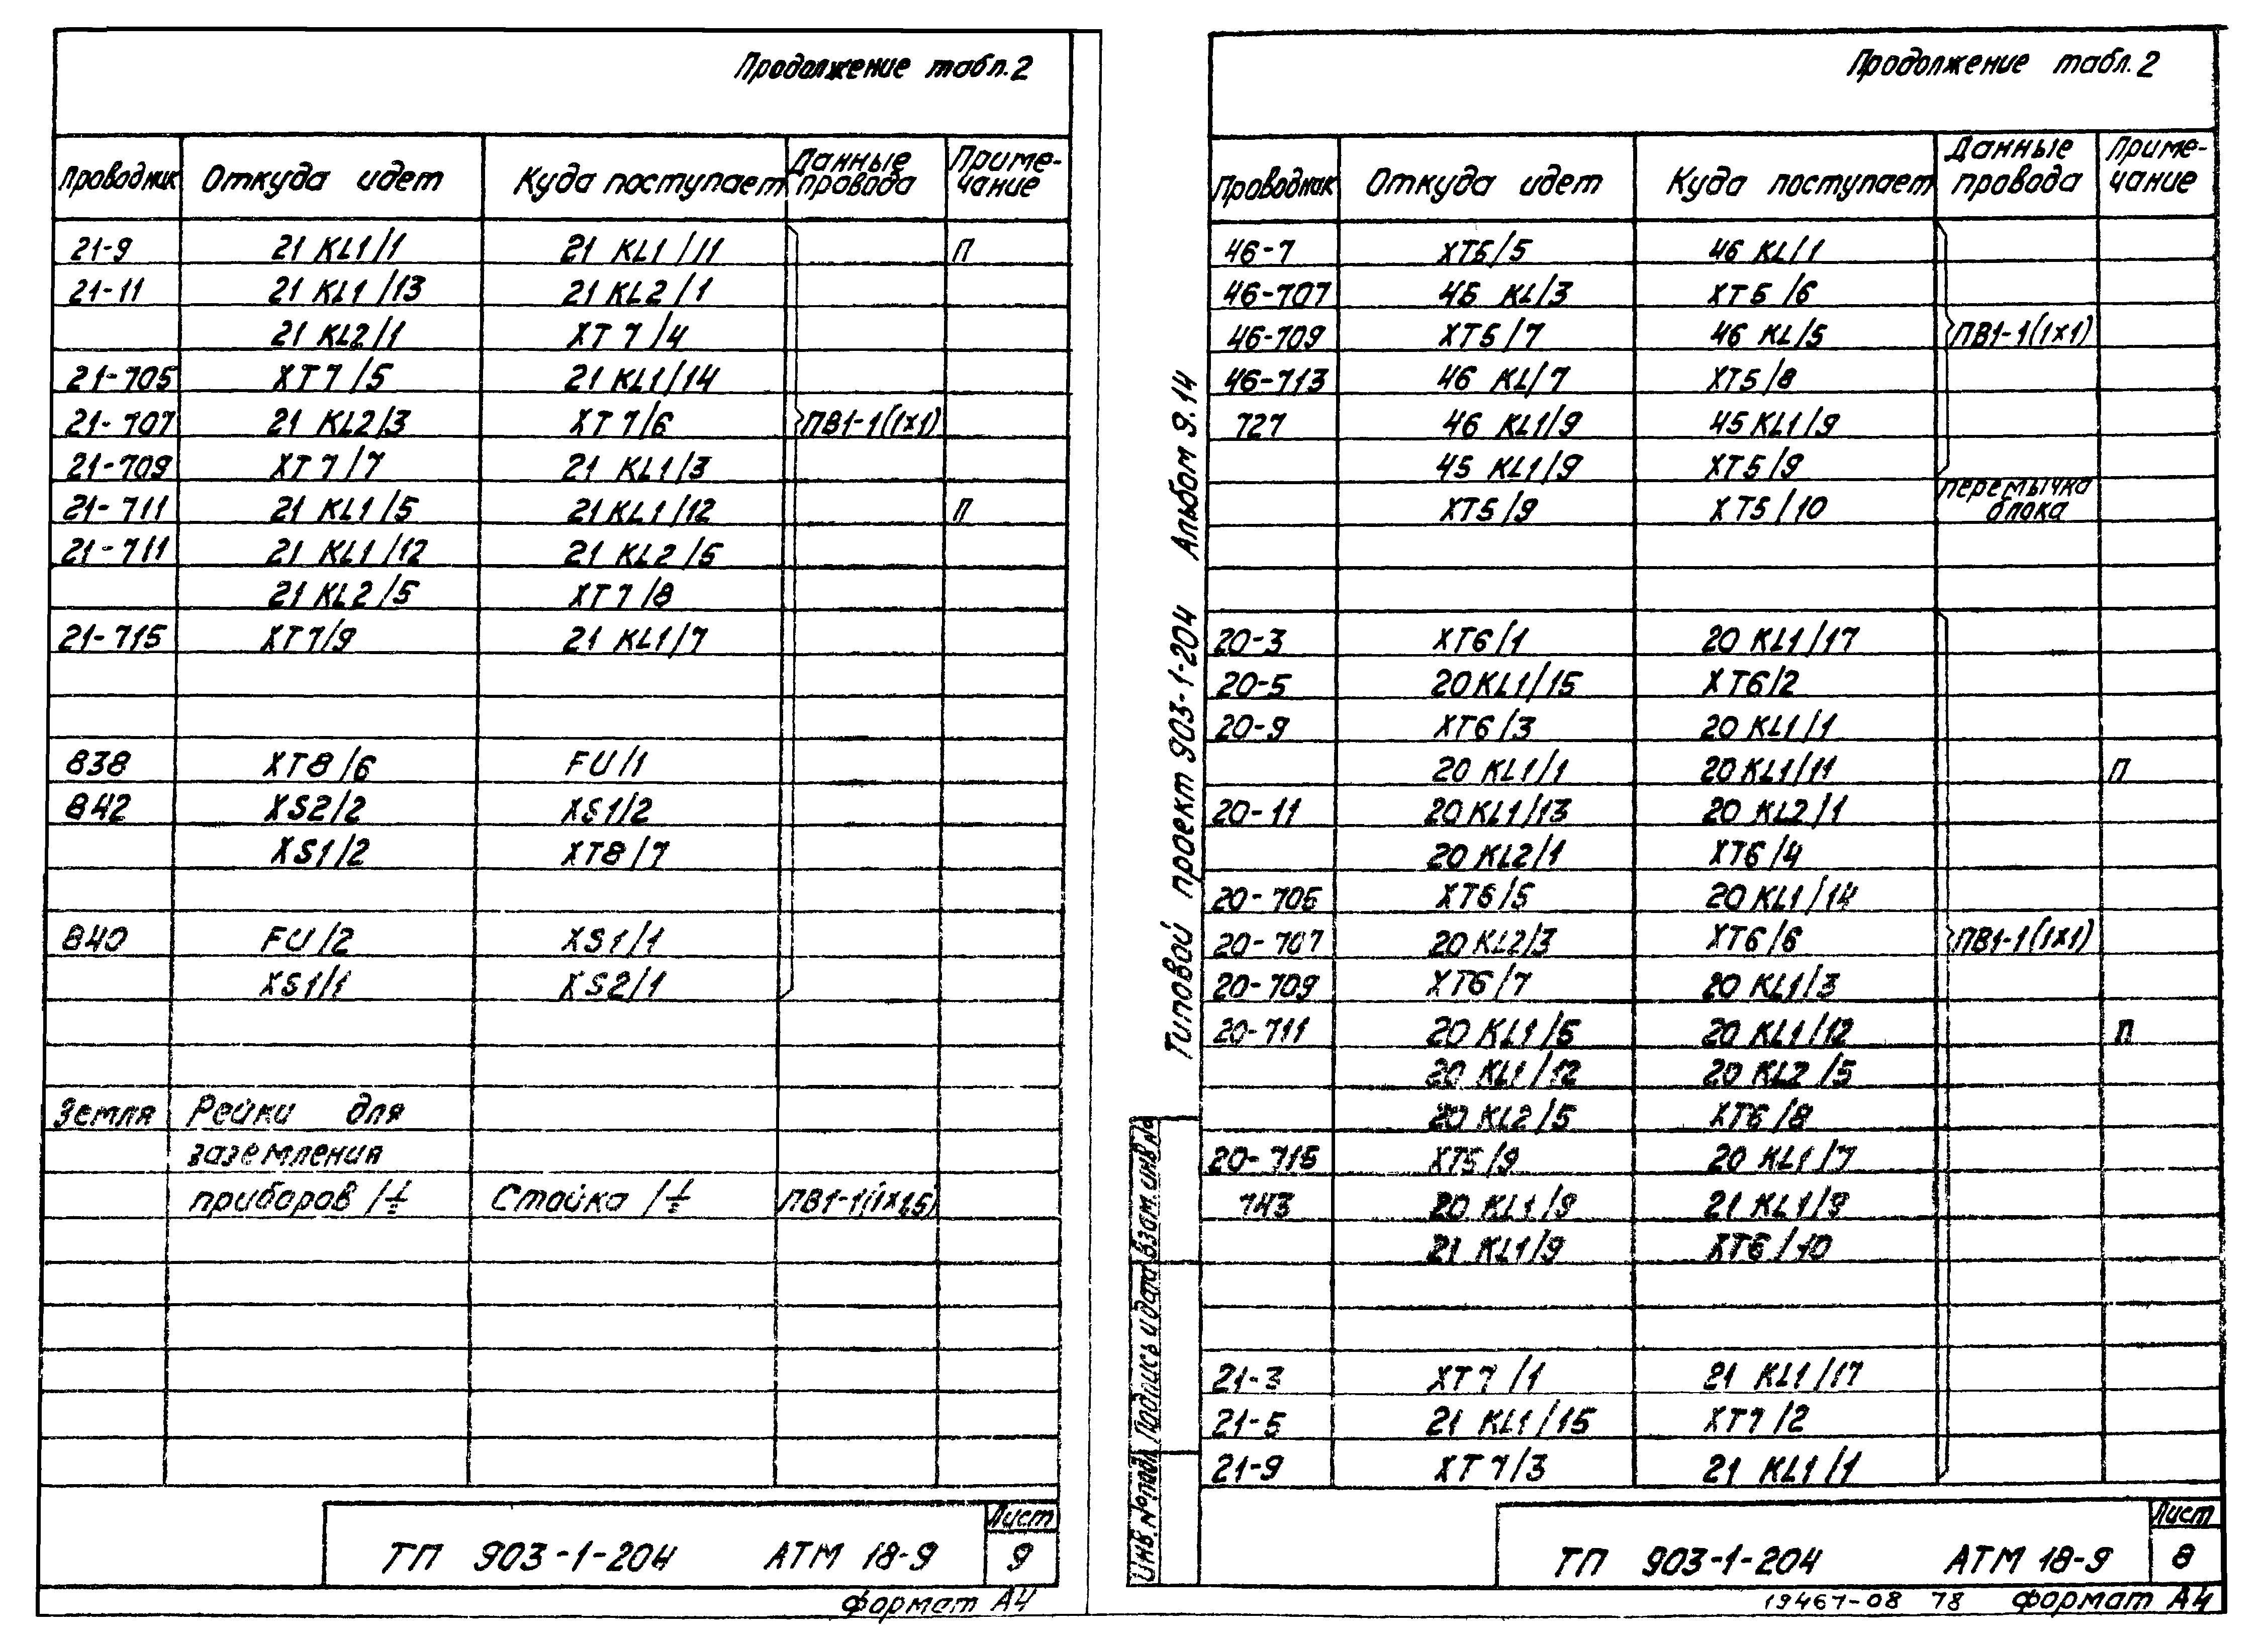 Продолжение табл. 2
Проводник Откуда идет Куда поступает Данные провода Приме-чание
21-9 21 KL1/1 21 KL1/11 П
21-11 21 KL1/13 21 KL2/1
21 KL2/1 XT7/4
21-705 XT7/5 21 KL1/14
21-707 21 KL2/3 XT7/6 ПВ1-1(1х1)
21-709 XT7/7 21 KL1/3
21-711 21 KL1/5 21 KL1/12 П
21-711 21 KL1/12 21 KL2/5
21 KL2/5 XT7/8
21-715 XT7/9 21 KL1/7
838 XT8/6 FU/1
842 XS2/2 XS1/2
XS1/2 XT8/7
840 FU/2 XS1/1
XS1/1 XS2/1
Земля Рейки для
заземления
приборов /⏚ Стойка /⏚ ПВ1-1(1х1,5)
Лист
ТП 903-1-204 АТМ 18-9 9
формат А4
Продолжение табл. 2
Проводник Откуда идет Куда поступает Данные провода Приме-чание
46-7 XT5/5 46 KL/1
46-707 46 KL/3 XT5/6
46-709 XT5/7 46 KL/5 ПВ1-1(1х1)
46-713 46 KL/7 XT5/8
727 46 KL1/9 45 KL1/9
45 KL1/9 XT5/9
XT5/9 XT5/10 перемычка блока
20-3 XT6/1 20 KL1/17
20-5 20 KL1/15 XT6/2
20-9 XT6/3 20 KL1/1
20 KL1/1 20 KL1/11 П
20-11 20 KL1/13 20 KL2/1
20 KL2/1 XT6/4
20-705 XT6/5 20 KL1/14
20-707 20 KL2/3 XT6/6 ПВ1-1(1х1)
20-709 XT6/7 20 KL1/3
20-711 20 KL1/5 20 KL1/12 П
20 KL1/12 20 KL2/5
20 KL2/5 XT6/8
20-715 XT5/9 20 KL1/7
743 20 KL1/9 21 KL1/9
21 KL1/9 XT6/10
21-3 XT7/1 21 KL1/17
21-5 21 KL1/15 XT7/2
21-9 XT7/3 21 KL1/1
Лист
ТП 903-1-204 АТМ 18-9 8
19467-08 78 формат А4
Типовой проект 903-1-204 Альбом 9.14
Инв. № подл. Подпись и дата Взам. инв. №